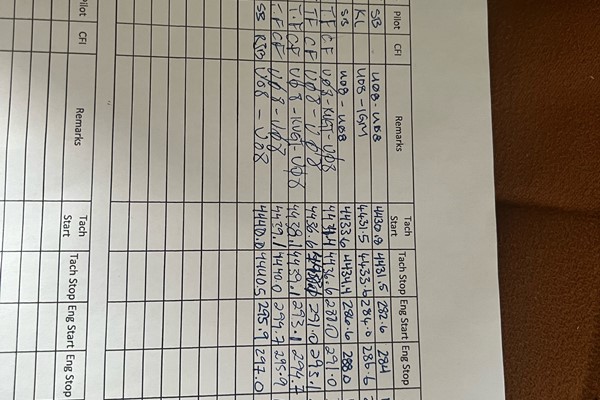 Pilot CFI Remarks Tach Start Tach Stop Eng Start Eng Stop
SB U08-U08 4430.8 4431.5 282.6 284
KL U08-IGM 4431.5 4433.6 284.0 286.6
SB U08-U08 4433.6 4434.4 286.6 288.0
TF CF U08-KVGT-U08 4436.6 288.0 291.0
TF CF U08-U08 4436.6 291.0 293.1
TF CF U08-KVGT-U08 4439.1 293.1 294.7
TF CF U08-U08 4439.1 4440.0 294.7 295.9
SB RJB U08-U08 4440.0 4440.5 295.9 297.0
Pilot CFI Remarks Tach Start Tach Stop Eng Start Eng Stop